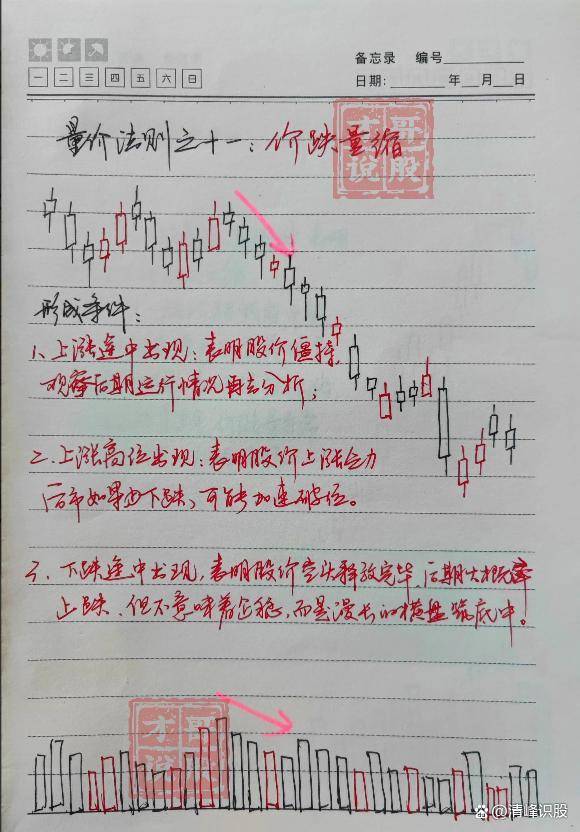 备忘录 编号
一 二 三 四 五 六 日
日期: 年 月 日
量价法则之十一：价跌量缩
才哥说股
形成条件：
1、上涨途中出现：表明股价僵持，
观察后期运行情况再去分析；
二、上涨高位出现：表明股价上涨乏力
后市如果再下跌，可能加速破位。
3、下跌途中出现，表明股价空头释放完毕，后期大概率
止跌，但不意味着企稳，而是漫长的横盘筑底中。
才哥说股
清峰识股